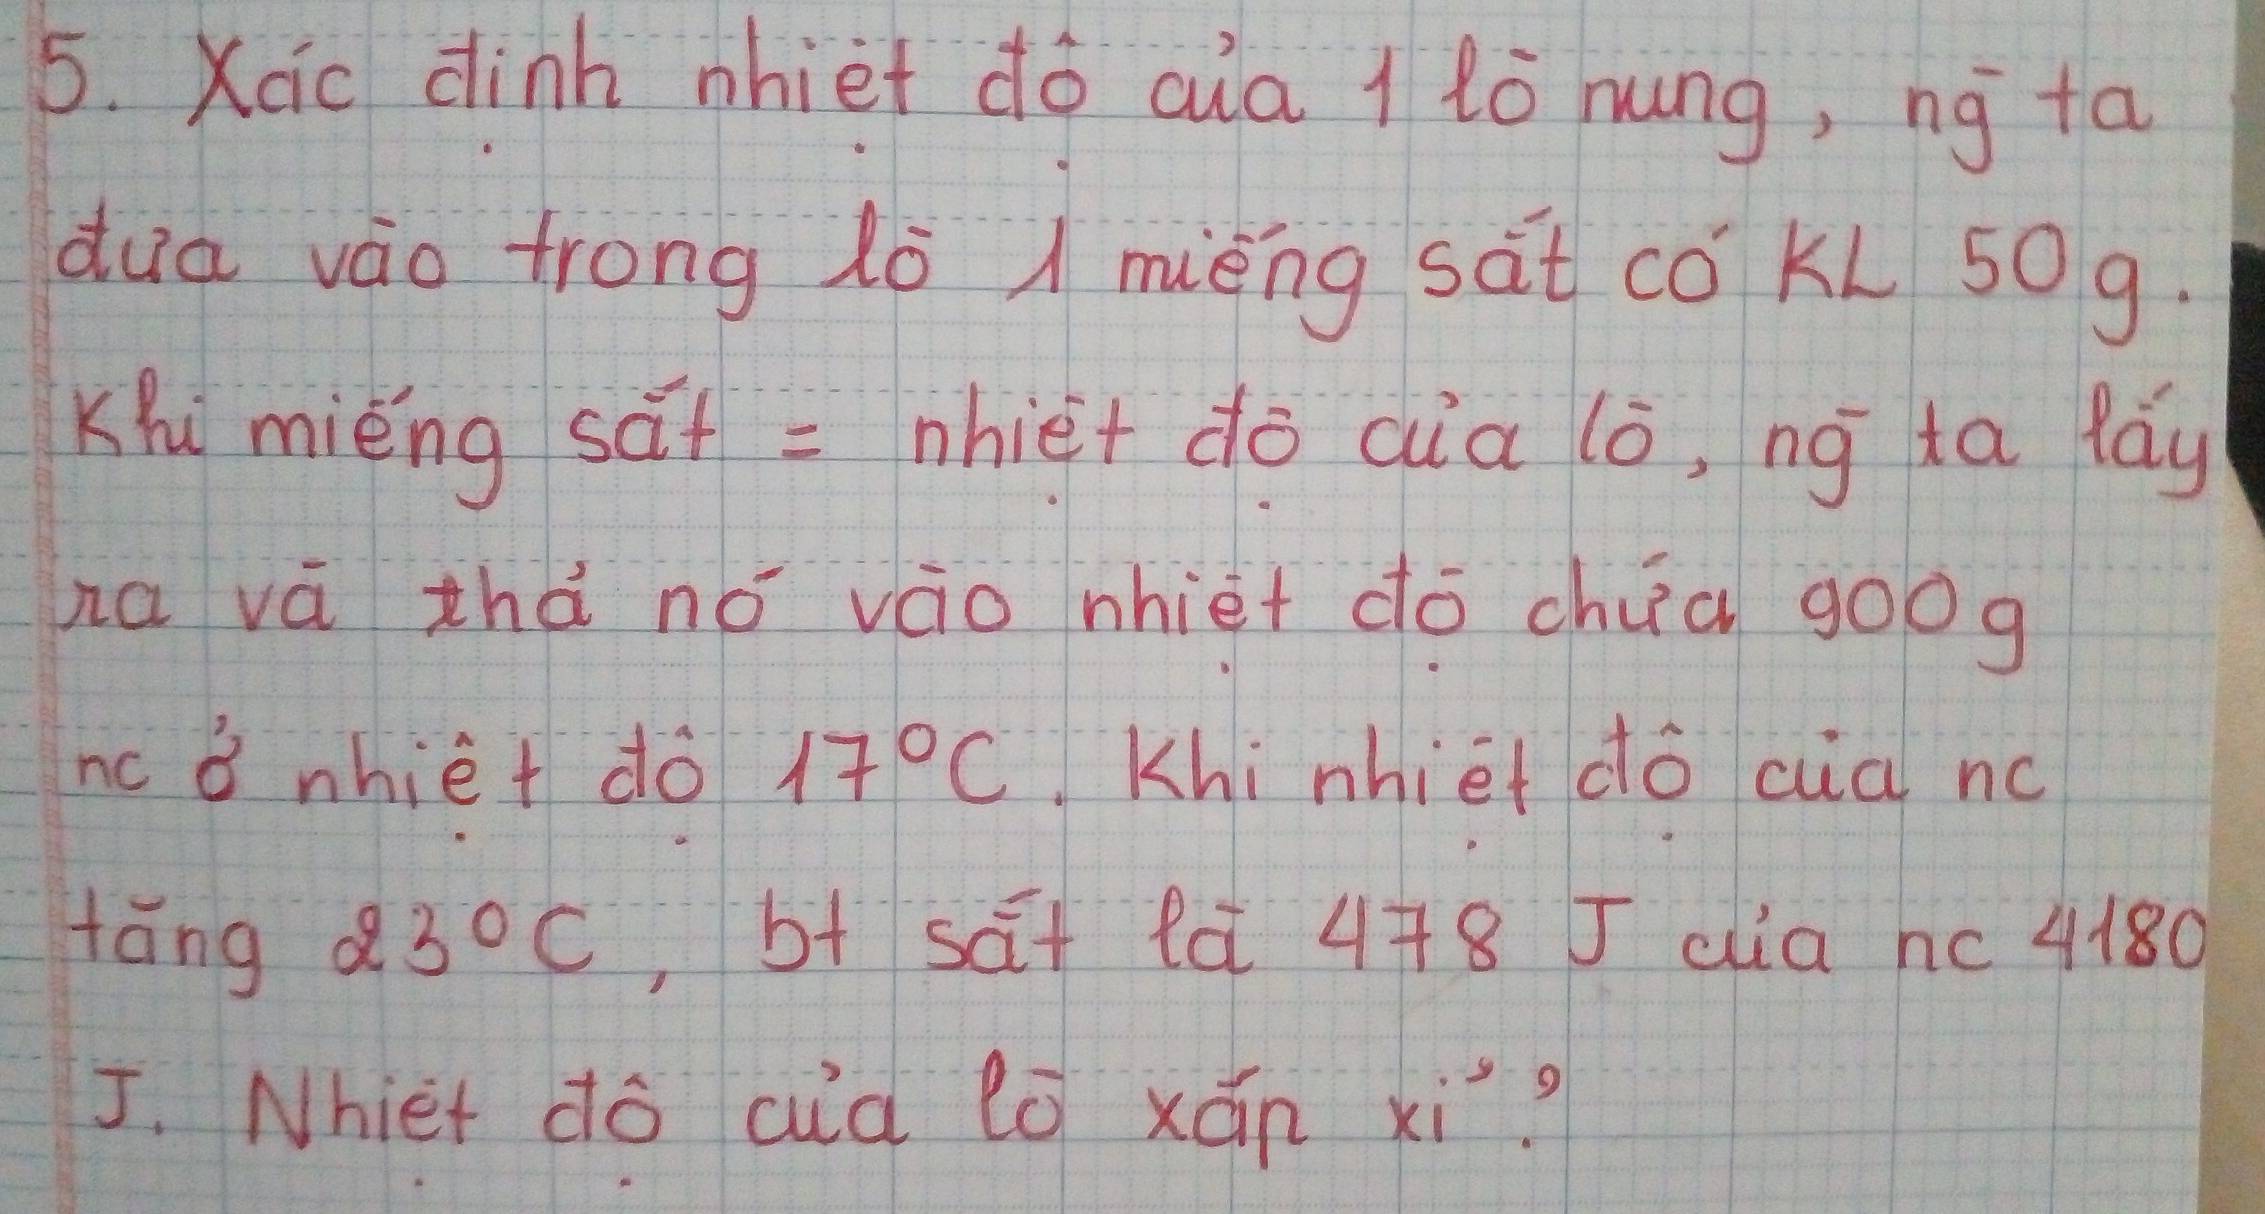 5. Xác định nhiệt độ của 1 lò nung, ng̀ ta
đưa vào trong lò 1 miếng sắt có KL 50g.
Khi miếng sắt = nhiệt độ của lò, ng̀ ta lấy
ra và thả nó vào nhiệt độ chứa 900g
nc ở nhiệt độ 17°C. Khi nhiệt độ của nc
tăng 23°C, bt sắt là 478 J của nc 4180
J. Nhiệt độ của lò xấp xỉ?